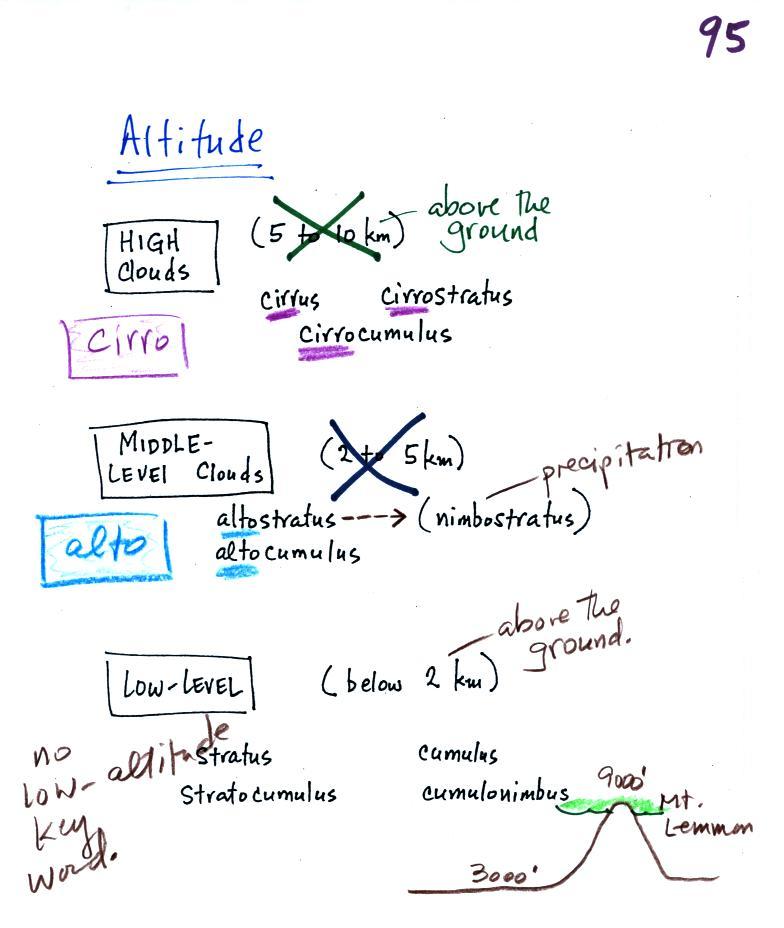 95
Altitude
HIGH
Clouds
(5 to 10 km)
above the
ground
cirrus
cirrostratus
cirrocumulus
cirro
MIDDLE-
LEVEL Clouds
(2 to 5 km)
precipitation
altostratus
(nimbostratus)
altocumulus
alto
LOW-LEVEL
(below 2 km)
above the
ground.
no
low-altitude
key
word.
Stratus
cumulus
Stratocumulus
cumulonimbus
9000'
Mt.
Lemmon
3000'